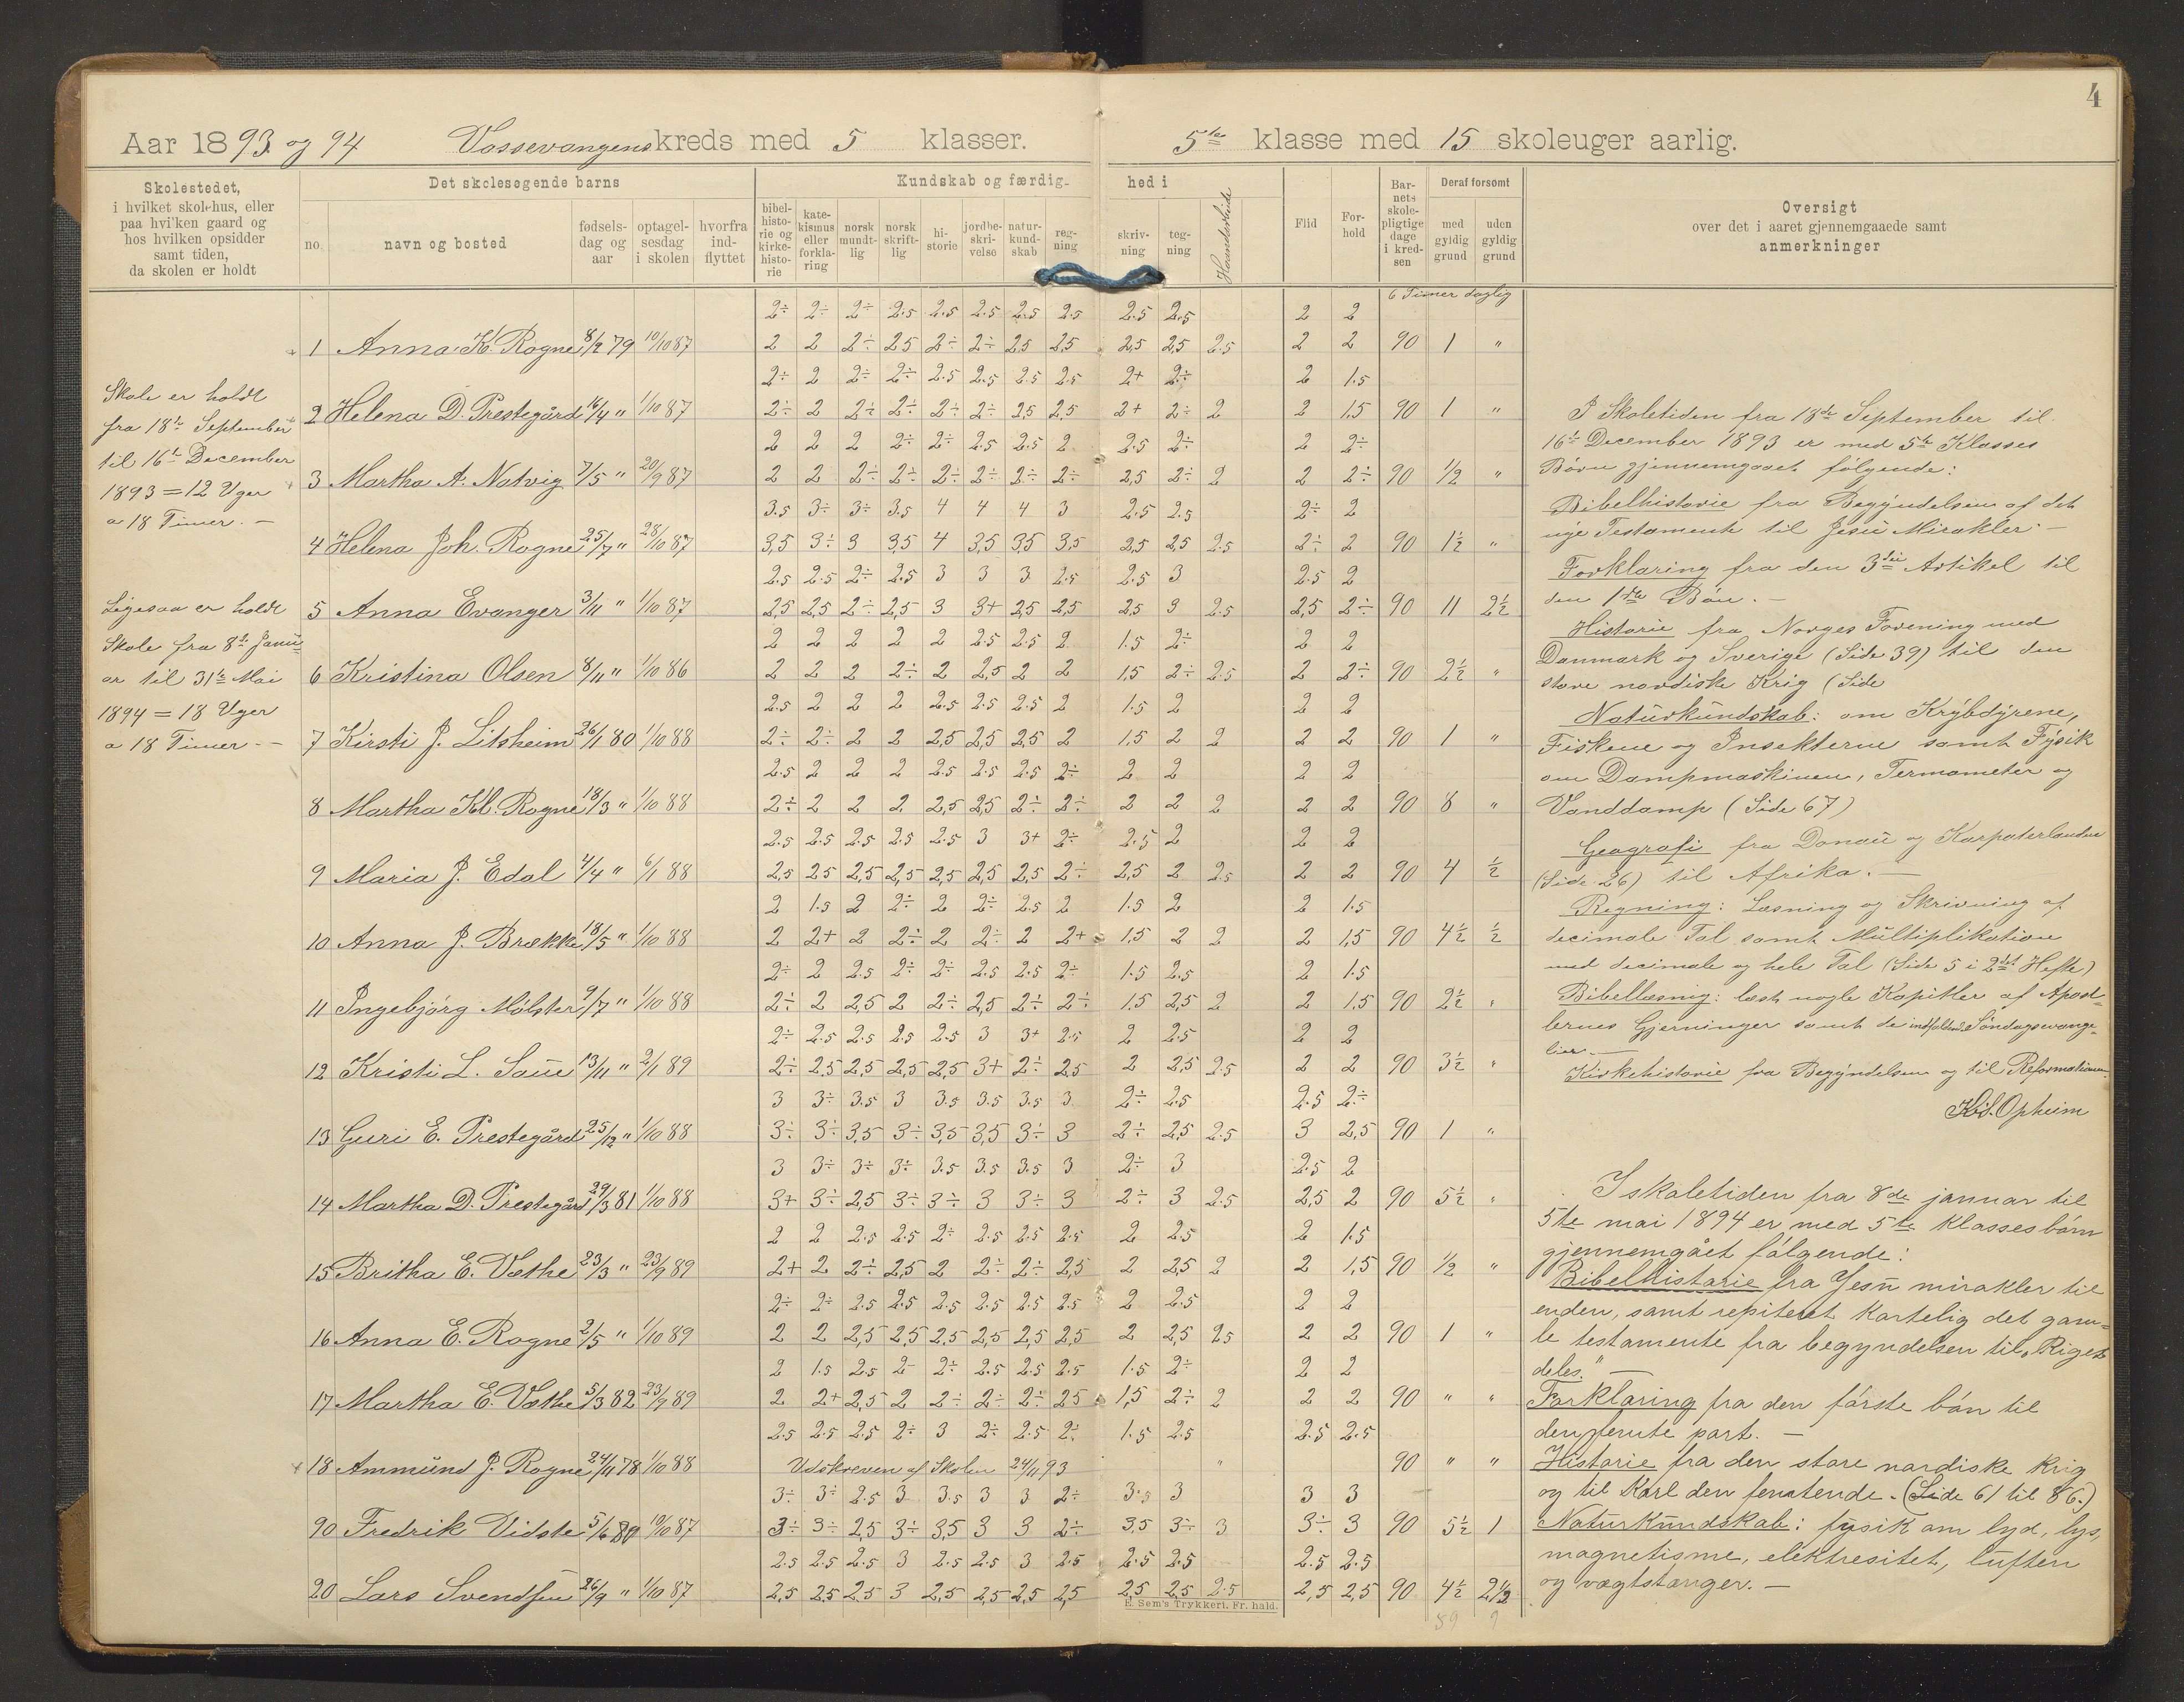 4
Aar 1893 og 94 Vossevangens kreds med 5 klasser. 5te klasse med 15 skoleuger aarlig.
Skolestedet,
i hvilket skolehus, eller
paa hvilken gaard og
hos hvilken opsidder
samt tiden,
da skolen er holdt
Det skolesøgende barns
no.
navn og bosted
fødsels-
dag og
aar
optagel-
sesdag
i skolen
hvorfra
ind-
flyttet
Kundskab og færdig-
hed i
bibel-
histo-
rie og
kirke-
histo-
rie
kate-
kismus
eller
forkla-
ring
norsk
mundt-
lig
norsk
skrift-
lig
hi-
storie
jordbe-
skri-
velse
natur-
kund-
skab
reg-
ning
skriv-
ning
teg-
ning
Haandarbeide
Flid
For-
hold
Bar-
nets
skole-
pligtige
dage
i kred-
sen
Deraf forsømt
med
gyldig
grund
uden
gyldig
grund
Oversigt
over det i aaret gjennemgaaede samt
anmerkninger
6 Timer daglig
Skole er holdt
fra 18de September
til 16de December
1893 = 12 Uger
a 18 Timer. —
Ligesaa er holdt
Skole fra 8de Janu-
ar til 31te Mai
1894 = 18 Uger
a 18 Timer. —
2÷ 2÷ 2÷ 2.5 2.5 2.5 2.5 2.5 2.5 2.5 2 2
1 Anna K. Rogne 8/2 79 10/10 87 2 2 2÷ 2,5 2÷ 2÷ 2,5 2,5 2,5 2,5 2.5 2 2 90 1 "
2÷ 2 2÷ 2÷ 2.5 2.5 2.5 2.5 2+ 2÷ 2 1.5
2 Helena D. Prestegård 16/4 " 1/10 87 2÷ 2 2÷ 2÷ 2÷ 2÷ 2,5 2,5 2+ 2÷ 2 2 1,5 90 1 "
2 2 2 2÷ 2÷ 2.5 2.5 2 2.5 2÷ 2 2÷
3 Martha A. Natvig 7/5 " 20/9 87 2 2 2÷ 2÷ 2÷ 2÷ 2÷ 2÷ 2,5 2÷ 2 2 2÷ 90 1/2 "
3.5 3÷ 3÷ 3.5 4 4 4 3 2.5 2.5 2÷ 2
4 Helena Joh. Rogne 25/7 " 28/10 87 3,5 3÷ 3 3,5 4 3,5 3,5 3,5 2,5 2,5 2.5 2÷ 2 90 1 1/2 "
2.5 2.5 2÷ 2.5 3 3 3 2.5 2.5 3 2.5 2
5 Anna Evanger 3/11 " 1/10 87 2,5 2,5 2÷ 2,5 3 3+ 2,5 2,5 2,5 3 2.5 2,5 2÷ 90 11 2 1/2
2 2 2 2 2 2.5 2.5 2 1.5 2÷ 2 2
6 Kristina Olsen 8/11 " 1/10 86 2 2 2 2÷ 2 2,5 2 2 1,5 2÷ 2.5 2 2÷ 90 2 1/2 "
2.5 2 2 2 2.5 2.5 2.5 2 1.5 2 2 2
7 Kirsti J. Litsheim 26/1 80 1/10 88 2÷ 2÷ 2 2 2,5 2,5 2,5 2 1,5 2 2 2 2 90 1 "
2.5 2 2 2 2.5 2.5 2.5 2÷ 2 2 2 2
8 Martha Kl. Rogne 18/3 " 1/10 88 2÷ 2 2 2 2,5 2,5 2÷ 2÷ 2 2 2 2 2 90 8 "
2.5 2.5 2.5 2.5 2.5 3 3+ 2÷ 2.5 2 2 2
9 Maria J. Edal 4/4 " 6/1 88 2,5 2,5 2,5 2,5 2,5 2,5 2,5 2÷ 2,5 2 2.5 2 2 90 4 1/2
2 1.5 2 2÷ 2 2÷ 2.5 2 1.5 2 2 1.5
10 Anna J. Brække 18/5 " 1/10 88 2 2+ 2 2÷ 2 2÷ 2 2+ 1,5 2 2 2 1,5 90 4 1/2 1/2
2÷ 2 2.5 2÷ 2÷ 2.5 2.5 2÷ 1.5 2.5 2 1.5
11 Ingebjörg Mölster 9/7 " 1/10 88 2÷ 2 2,5 2 2÷ 2,5 2÷ 2÷ 1.5 2,5 2 2 1,5 90 2 1/2 "
2÷ 2.5 2.5 2.5 2.5 3 3+ 2.5 2 2.5 2 2
12 Kristi L. Saue 13/11 " 2/1 89 2÷ 2,5 2,5 2,5 2,5 3+ 2÷ 2,5 2 2,5 2.5 2 2 90 3 1/2 "
3 3÷ 3.5 3 3.5 3.5 3.5 3 2÷ 2.5 2.5 2÷
13 Guri E. Prestegård 25/12 " 1/10 88 3÷ 3÷ 3,5 3÷ 3,5 3,5 3÷ 3 2÷ 2,5 2.5 3 2,5 90 1 "
3 3÷ 3÷ 3÷ 3.5 3.5 3.5 3 2÷ 3 2.5 2
14 Martha D. Prestegård 29/3 81 1/10 88 3+ 3÷ 2,5 3÷ 3÷ 3 3÷ 3 2÷ 3 2.5 2,5 2 90 5 1/2 "
2 2 2.5 2.5 2÷ 2.5 2.5 2.5 2 2.5 2 1.5
15 Britha E. Vethe 23/3 " 23/9 89 2+ 2 2÷ 2,5 2 2÷ 2÷ 2,5 2 2,5 2 2 1,5 90 1/2 "
2÷ 2÷ 2.5 2.5 2.5 2.5 2.5 2.5 2 2.5 2 2
16 Anna E. Rogne 2/5 " 1/10 89 2 2 2,5 2,5 2,5 2,5 2,5 2,5 2 2,5 2,5 2 2 90 1 "
2 1.5 2.5 2- 2÷ 2.5 2.5 2.5 1.5 2÷ 2 2
17 Martha E. Vethe 5/3 82 23/9 89 2 2+ 2,5 2 2÷ 2÷ 2÷ 2,5 1,5 2÷ 2 2 2 90 " "
2.5 2.5 2.5 2÷ 3 2÷ 2.5 2÷ 1.5 2.5 2.5 2.5
18 Ammund J. Rogne 24/11 78 1/10 88 Udskreven af Skolen 24/11 93 " 90 " "
3÷ 3÷ 2.5 3 3.5 3 3 2÷ 3.5 3 3 3
90 Fredrik Vidste 5/6 80 10/10 87 3÷ 3÷ 2,5 3÷ 3,5 3 3 2÷ 3,5 3÷ 3 3÷ 3 90 5 1/2 1
2.5 2.5 2.5 3 2.5 2.5 3 2.5 2.5 2.5 2.5 2.5
20 Lars Svendsen 26/9 " 1/10 87 2,5 2,5 2.5 3 2,5 2,5 2,5 2,5 2,5 2,5 2.5 2,5 2,5 90 4 1/2 2 1/2
E. Sem's Trykkeri, Fr.hald.
89 9
I Skoletiden fra 18de September til
16de December 1893 er med 5te Klasses
Börn gjennemgaaet følgende:
Bibelhistorie fra Begyndelsen af det
nye Testamente til Jesu Mirakler. —
Forklaring fra den 3die Artikel til
den 1ste Bön. —
Historie fra Norges Forening med
Danmark og Sverige (Side 39) til den
store nordiske Krig (Side
Naturkundskab: om Krybdyrene,
Fiskene og Insekterne samt Fysik
om Dampmaskinen, Termometer og
Vanddamp (Side 67)
Geografi fra Donau og Karpaterlandene
(Side 26) til Afrika. —
Regning: Læsning og Skrivning af
decimale Tal samt Multiplikation
med decimale og hele Tal (Side 5 i 2det Hefte)
Bibellæsnig: læst nogle Kapitler af Apost-
lernes Gjerninger samt de indfaldne Söndagsevange-
lier. —
Kirkehistorie fra Begyndelsen og til Reformationen.
K. S. Opheim
I skoletiden fra 8de januar til
5te mai 1894 er med 5te klasses börn
gjennemgået følgende:
Bibelhistorie fra Jesu mirakler til
enden, samt repiteret kortelig det gam-
le testamente fra begyndelsen til „Rigets
deles." —
Forklaring fra den förste bön til
den femte part. —
Historie fra den store nordiske krig
og til Karl den femtende. (Side 61 til 86.)
Naturkundskab: fysik om lyd, lys,
magnetisme, elektresitet, luften
og vægtstanger. —